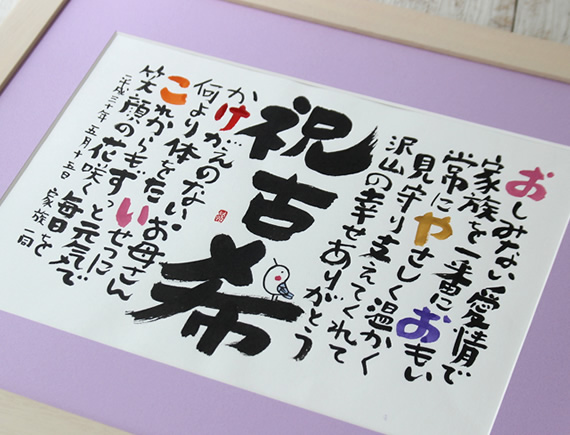 おしみない愛情で
家族を一番におもい
常にやさしく温かく
見守り支えてくれて
沢山の幸せありがとう
祝古希
かけがえのないお母さん
何より体をたいせつに
これからもずっと元気で
笑顔の花咲く毎日を
平成三十年五月十五日 家族一同